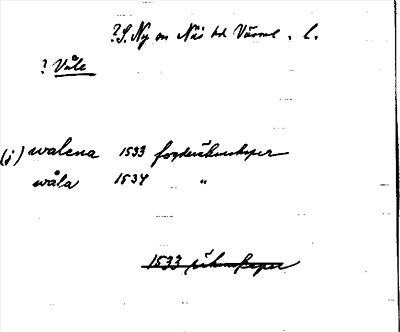 ?S. Ny sn Näs hd Värml. l.
? Våle
(i) walena 1533 fogderäkenskaper
wåla 1534 "
1533 räkenskaper